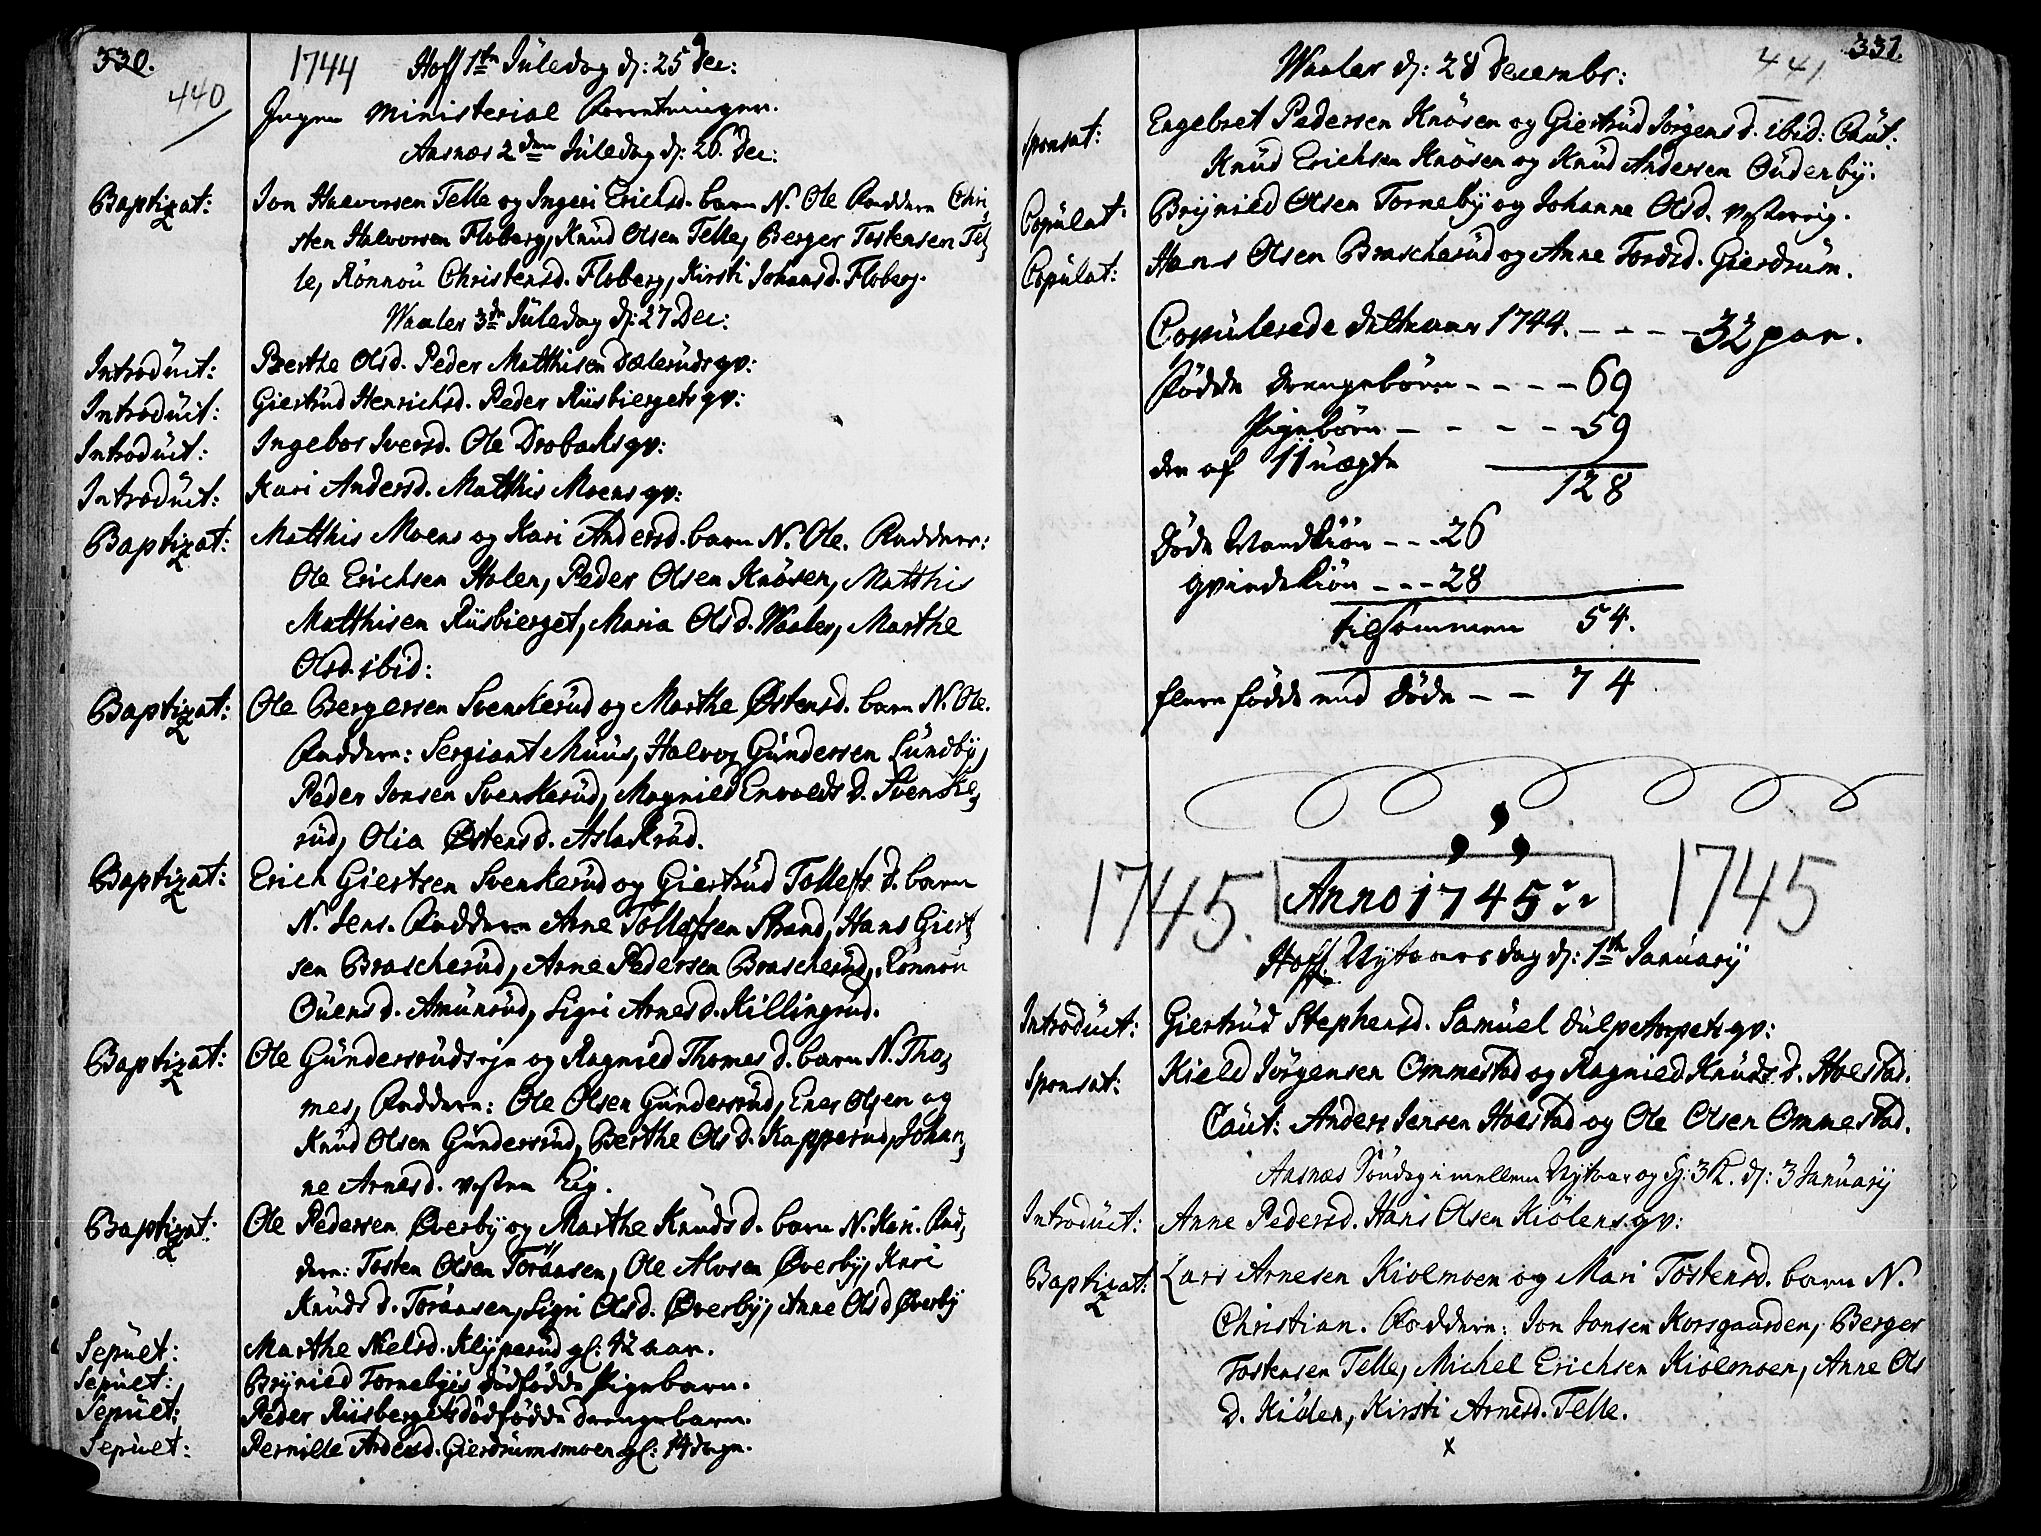 330.
440
1744 Hoff 1te Juledag d: 25 Dec:
Ingen Ministerial Forretninger.
Aasnæs 2den Juledag d: 26 Dec:
Baptizat: Jon Halvorsen Telle og Ingeri Erichsd. barn N. Ole Faddere Chri,
sten Halvorsen Floberg, Knud Olsen Telle, Berger Tostensen Tel,
le, Rönnou Christensd. Floberg, Kirsti Johansd. Floberg.
Waaler 3de Juledag d: 27 Dec:
Introduct: Berthe Olsd. Peder Matthisen Dælerudsqv:
Introduct: Giertrud Henrichsd. Peder Riisbiergetsqv:
Introduct: Ingebor Iversd. Ole Drobaksqv:
Introduct: Kari Andersd. Matthis Moensqv:
Baptizat: Matthis Moens og Kari Andersd. barn N. Ole. Faddere:
Ole Erichsen Holen, Peder Olsen Knösen, Matthis
Matthisen Riisbierget, Maria Olsd. Waaler, Marthe
Olsd. ibid:
Baptizat: Ole Bergersen Svenkerud og Marthe Østensd. barn N. Ole.
Faddere: Sergiant Muus, Halvor Gundersen Sundby,
Peder Jonsen Svenkerud, Magnild Envoldsd. Svenke,
rud, Olia Østensd. Aslakrud.
Baptizat: Erich Giertsen Svenkerud og Giertrud Tollefsd. barn
N. Jens. Faddere Arne Tollefsen Strand, Hans Giert,
sen Brascherud, Arne Pedersen Brascherud, Rönnou
Ouensd. Amunrud, Sigri Arnesd. Killingrud.
Baptizat: Ole Gundersrudseje og Ragnild Thomesd. barn N. Tho,
mes, Faddere: Ole Olsen Gundersrud, Ener Olsen og
Knud Olsen Gundersrud, Berthe Olsd. Kapperud, Johan,
ne Arnesd. vesten Eig.
Baptizat: Ole Pedersen Øverby og Marthe Knudsd. barn N. Kari. Fad,
dere: Tosten Olsen Toraasen, Ole Alvsen Øverby, Kari
Knudsd. Toraasen, Sigri Olsd. Øverby, Anne Olsd Øverby
Sepuet: Marthe Nielsd. Klypperud gl: 42 aar.
Sepuet: Brynild Tornebyes dödfödde Pigebarn.
Sepuet: Peder Riisbergets dödfödde drengebarn.
Sepuet: Pernille Andersd. Gierdrumsmoen gl: 14 dage.
331.
441
Waaler d: 28 Decembr:
Sponsat: Engebret Pedersen Knösen og Giertrud Jörgensd. ibid: Caut:
Knud Erichsen Knösen og Knud Andersen Ouderby.
Copulat: Brynild Olsen Torneby og Johanne Olsd. vestereig.
Copulat: Hans Olsen Brascherud og Anne Tordsd. Gierdrum.
Copulerede dette aar 1744. - - - - 32 par.
Födde drengebörn - - - - 69
Pigebörn - - - - - 59
der af 11 uægte
128
Döde Mandkiön - - - 26
qvindekiön - - - 28
tilsammen 54.
flere födde end döde - - 74
1745. Anno 1745. 1745
Hoff. Nytaarsdag d: 1te Januarij
Introduct: Giertrud Stephensd. Samuel Dulpetorpetsqv:
Sponsat: Kield Jörgensen Ommestad og Ragnild Knudsd. Hoelstad.
Caut: Anders Jensen Hoelstad og Ole Olsen Ommestad.
Aasnæs Söndag imellem Nytaar og H: 3 K. d: 3 Januarij
Introduct: Anne Pedersd. Hans Olsen Kiölensqv:
Baptizat: Lars Arnesen Kiolmoen og Mari Tostensd. barn N.
Christian. Faddere: Jon Jonsen Korsgaarden, Berger
Tostensen Telle, Michel Erichsen Kiolmoen, Anne Ols
D. Kiölen, Kirsti Arnesd. Telle.
x